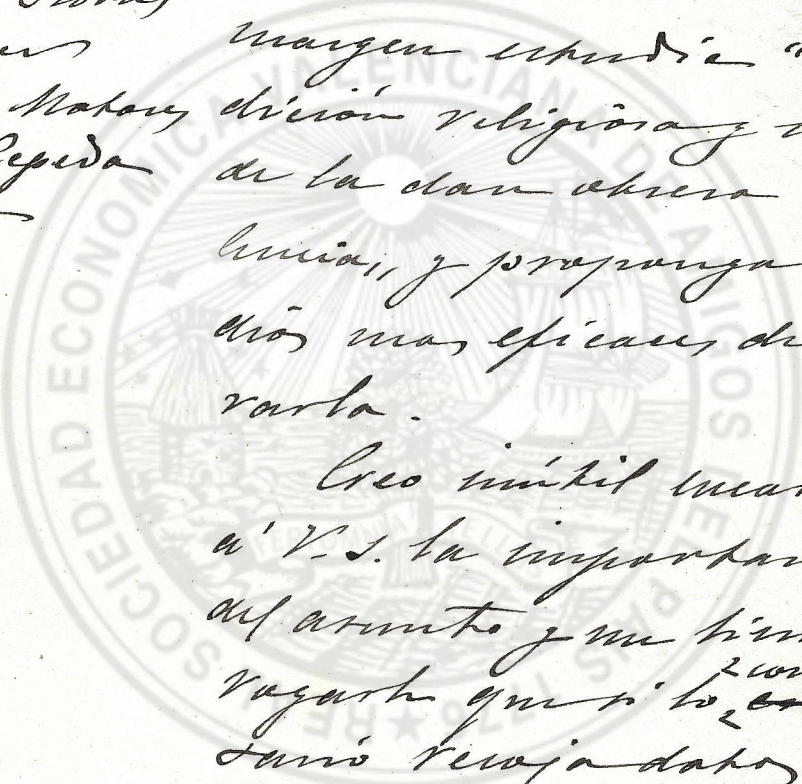 Matores
Cepeda
margen estudie "
dición religiosa y
de la clase obrera
lencia,, y proponga
dios mas eficaces de
rarla.
Creo inútil encar
á V. S. la importan
del asunto y me
rogarle que si lo con
sario recoja datos
REAL SOCIEDAD ECONOMICA VALENCIANA DE AMIGOS DEL PAIS 1776